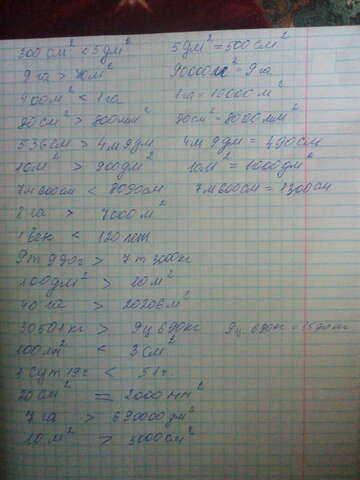 300 см² < 5 дм² 5 дм² = 500 см²
9 га > м² 90000 м² = 9 га
400 м² < 1 га 1 га = 10000 м²
80 см² > 800 мм² 80 см² = 8000 мм²
536 см > 4 м 9 дм 4 м 9 дм = 490 см
10 м² > 900 дм² 10 м² = 1000 дм²
7 м 600 см < 8090 см 7 м 600 см = 1300 см
га > 7000 м²
1 век < 120 лет
9 т 990 г > 7 т 3000 кг
100 дм² > 10 м²
40 га > 20206 м²
30501 кг > 9 ц 690 кг 9 ц 690 кг =
100 мм² < 3 см²
сут 19 ч < 51 ч.
20 см² = 2000 мм²
7 га > 690000 дм²
10 м² > 5000 см²